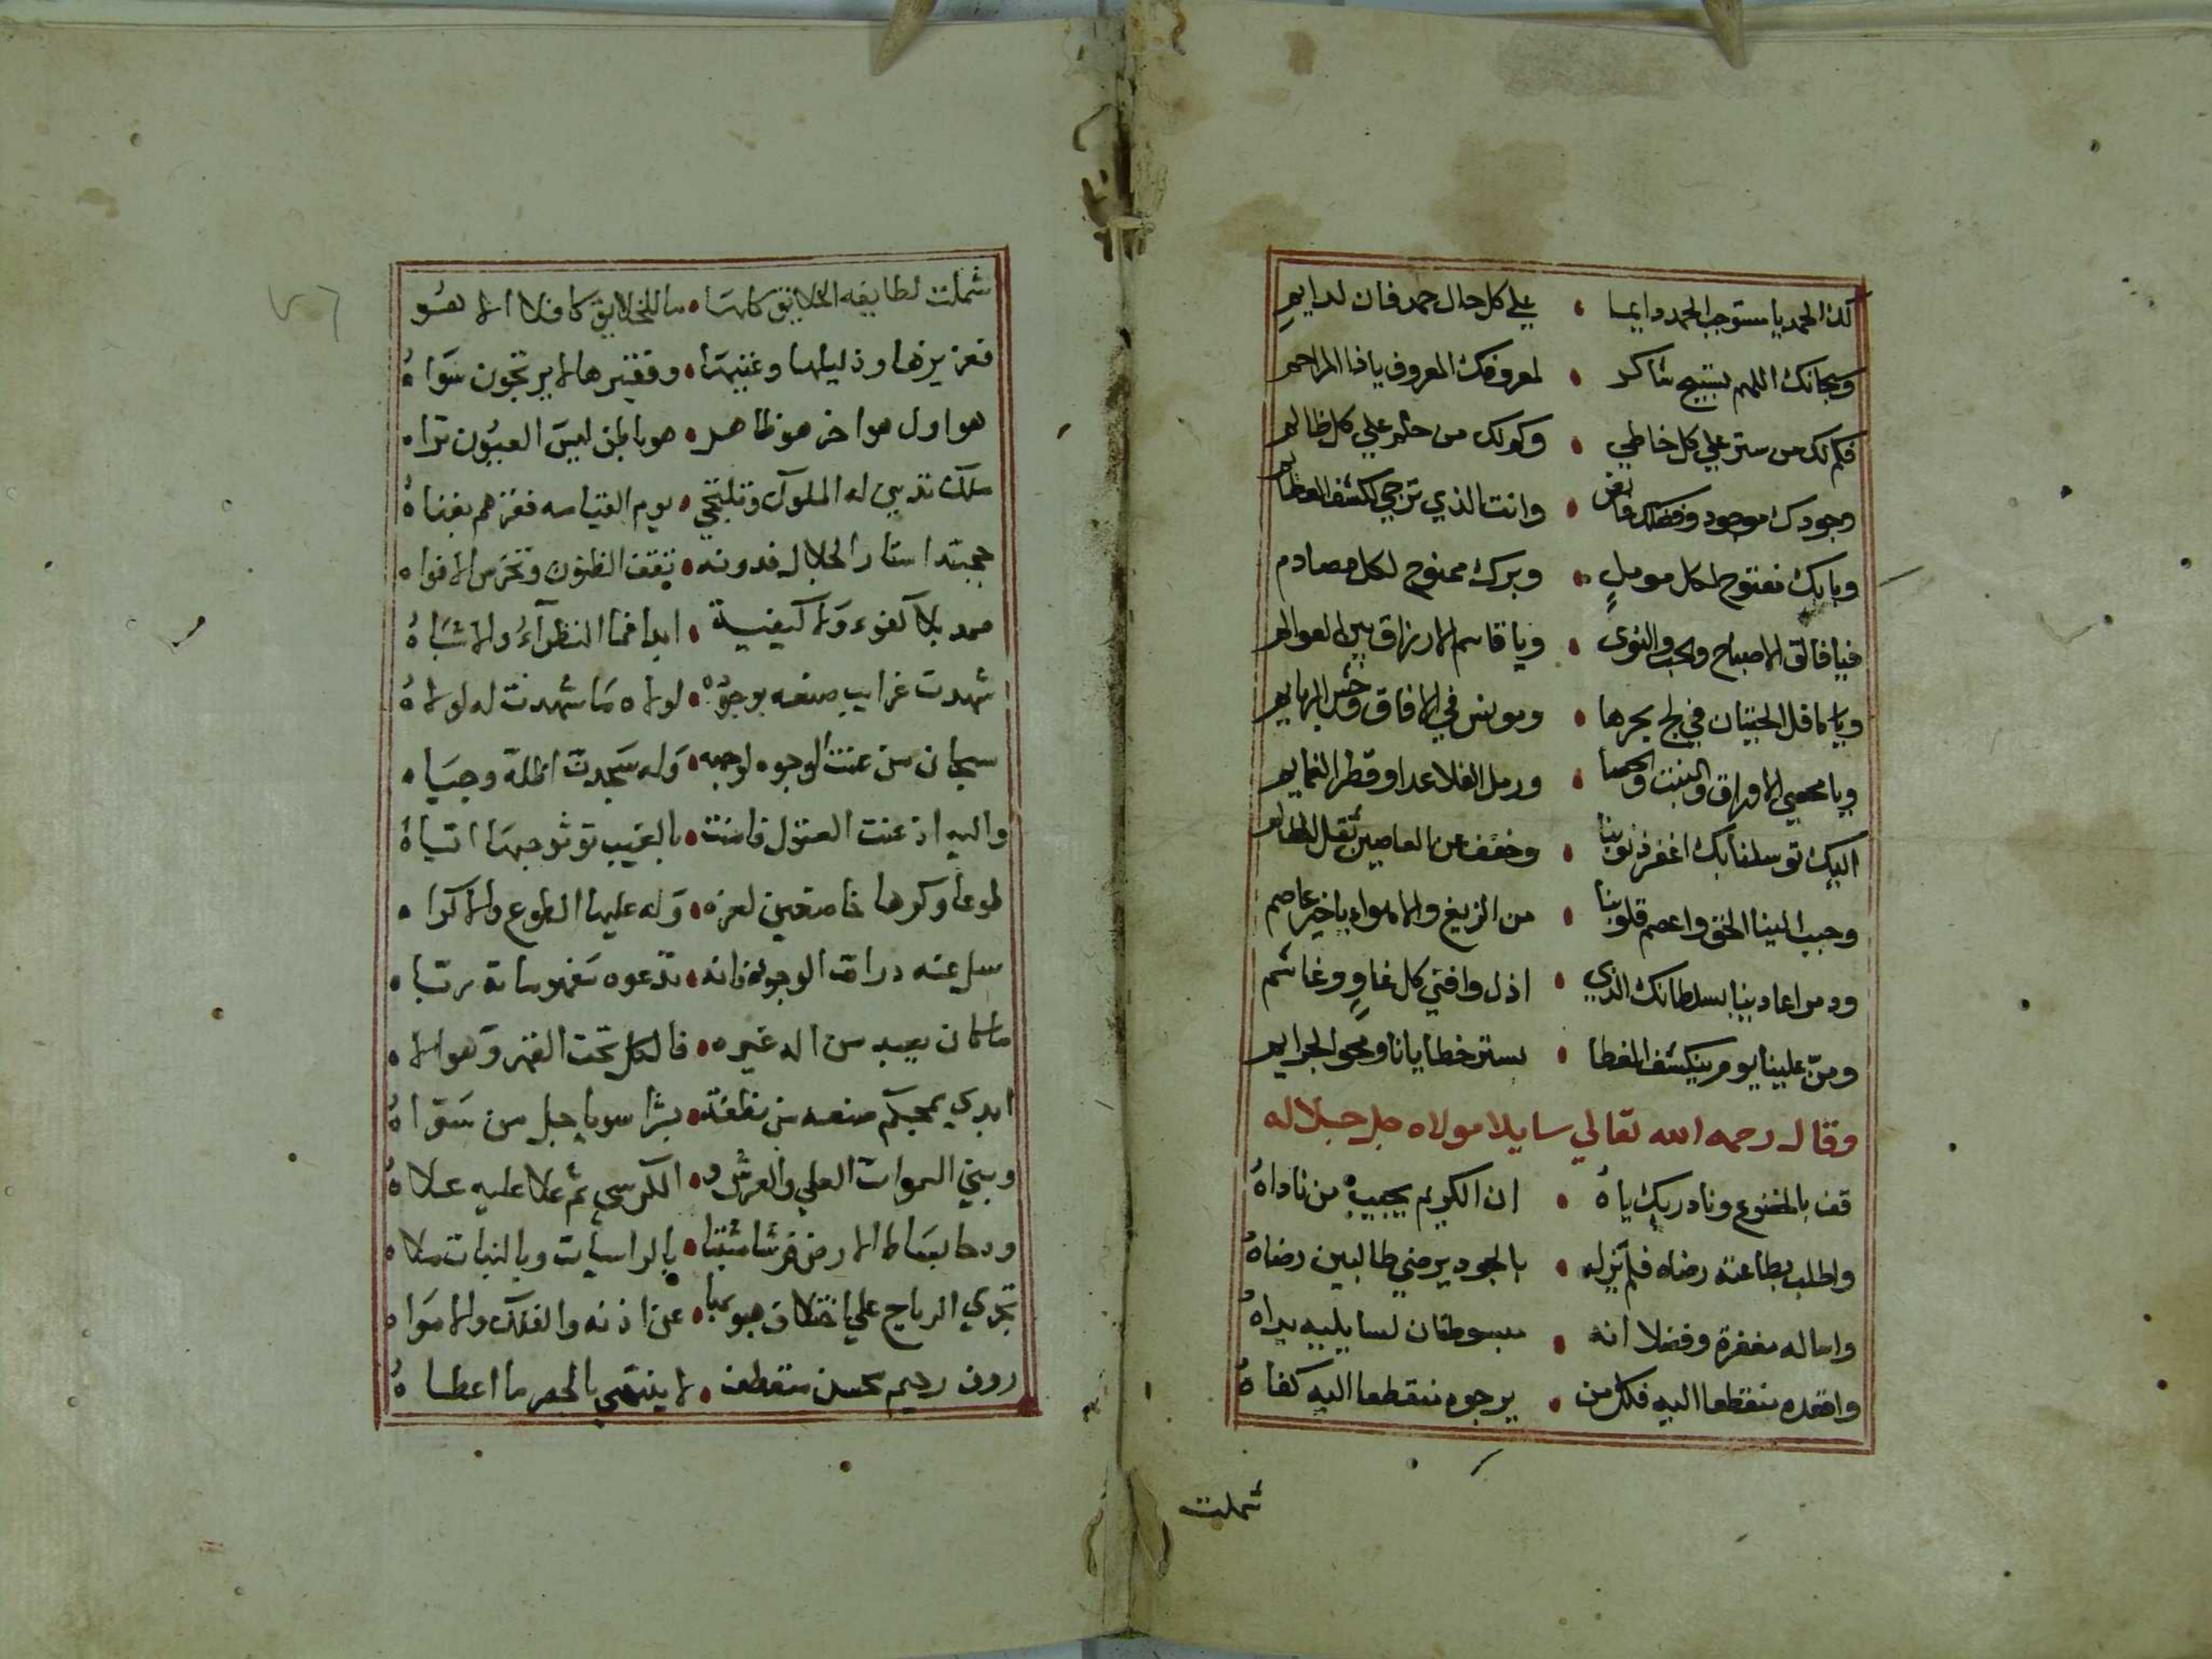 لك الحمد يا مستوجب الحمد دايما • علي كل حال حمد فان لدايم
وسبحانك اللهم تسبيح شاكر • لمعروفك المعروف يا ذا المراحم
فكم لك من ستر علي كل خاطي • وكم لك من حلم علي كل ظالم
وجودك موجود وفضلك فائض • وانت الذي ترجي لكشف العظائم
وبابك مفتوح لكل مومل • وبرك ممنوح لكل مصادم
فيا فالق الاصباح والحب والنوي • ويا قاسم الارزاق بين العوالم
ويا كافل الحيتان في لج بحرها • ومونس في الافاق وحش البهايم
ويا محصي الاوراق والنبت والحصا • ورمل الفلا عدا وقطر الغمايم
اليك توسلنا بك اغفر ذنوبنا • وخفف عن العاصين ثقل المظالم
وحبب الينا الحق واعصم قلوبنا • من الزيغ والاهواء يا خير عاصم
ودمر اعادينا بسلطانك الذي • اذل وافني كل غاو وغاشم
ومن علينا يوم ينكشف الغطا • بستر خطايانا ومحو الجرايم
وقال رحمه الله تعالي سايلا مولاه جل جلاله
قف بالخضوع وناد ربك ياه • ان الكريم يجيب من ناداه
واطلب بطاعته رضاه فلم يزل • بالجود يرضي طالبين رضاه
واساله مغفرة وفضلا انه • مبسوطتان لسايليه يداه
واقصده منقطعا اليه فكل من • يرجوه منقطعا اليه كفاه
شملت
شملت لطايفه الخلايق كلها • ما للخلايق كافلا الا هو
فعزيزها وذليلها وغنيها • وفقيرها لا يرتجون سواه
هو اول هو اخر هو ظاهر • هو باطن ليس العيون تراه
ملك تدين له الملوك وتلتجي • يوم القيامه فقرهم بغناه
حجبته استار الجلال فدونه • تقف الظنون وتخرس الافواه
صمد بلا كفوء ولا كيفية • ابدا فما النظرآء والاشباه
شهدت غرايب صنعه بوجوده • لولاه ما شهدت له لولاه
سبحان من عنت الوجوه لوجهه • وله سجدت اظلة وجباه
واليه اذعنت العقول فامنت • بالغيب توثر حبها اياه
طوعا وكرها خاضعين لعزه • وله عليها الطوع والاكراه
سل عنه ذرات الوجود فانه • تدعوه معبودا له رباه
ما كان يعبد من اله غيره • فالكل تحت القهر وهو اله
ابدي بمحكم صنعه من نطفة • بشرا سويا جل من سواه
وبني السموات العلي والعرش و • الكرسي ثم علا عليه علاه
ودحا بساط الارض فرشا مثبتا • بالراسيات وبالنبات حلاه
تجري الرياح علي اختلاف هبوبها • عن اذنه والفلك والامواه
روف رحيم محسن متعطف • لا ينتهي بالحصر ما اعطاه